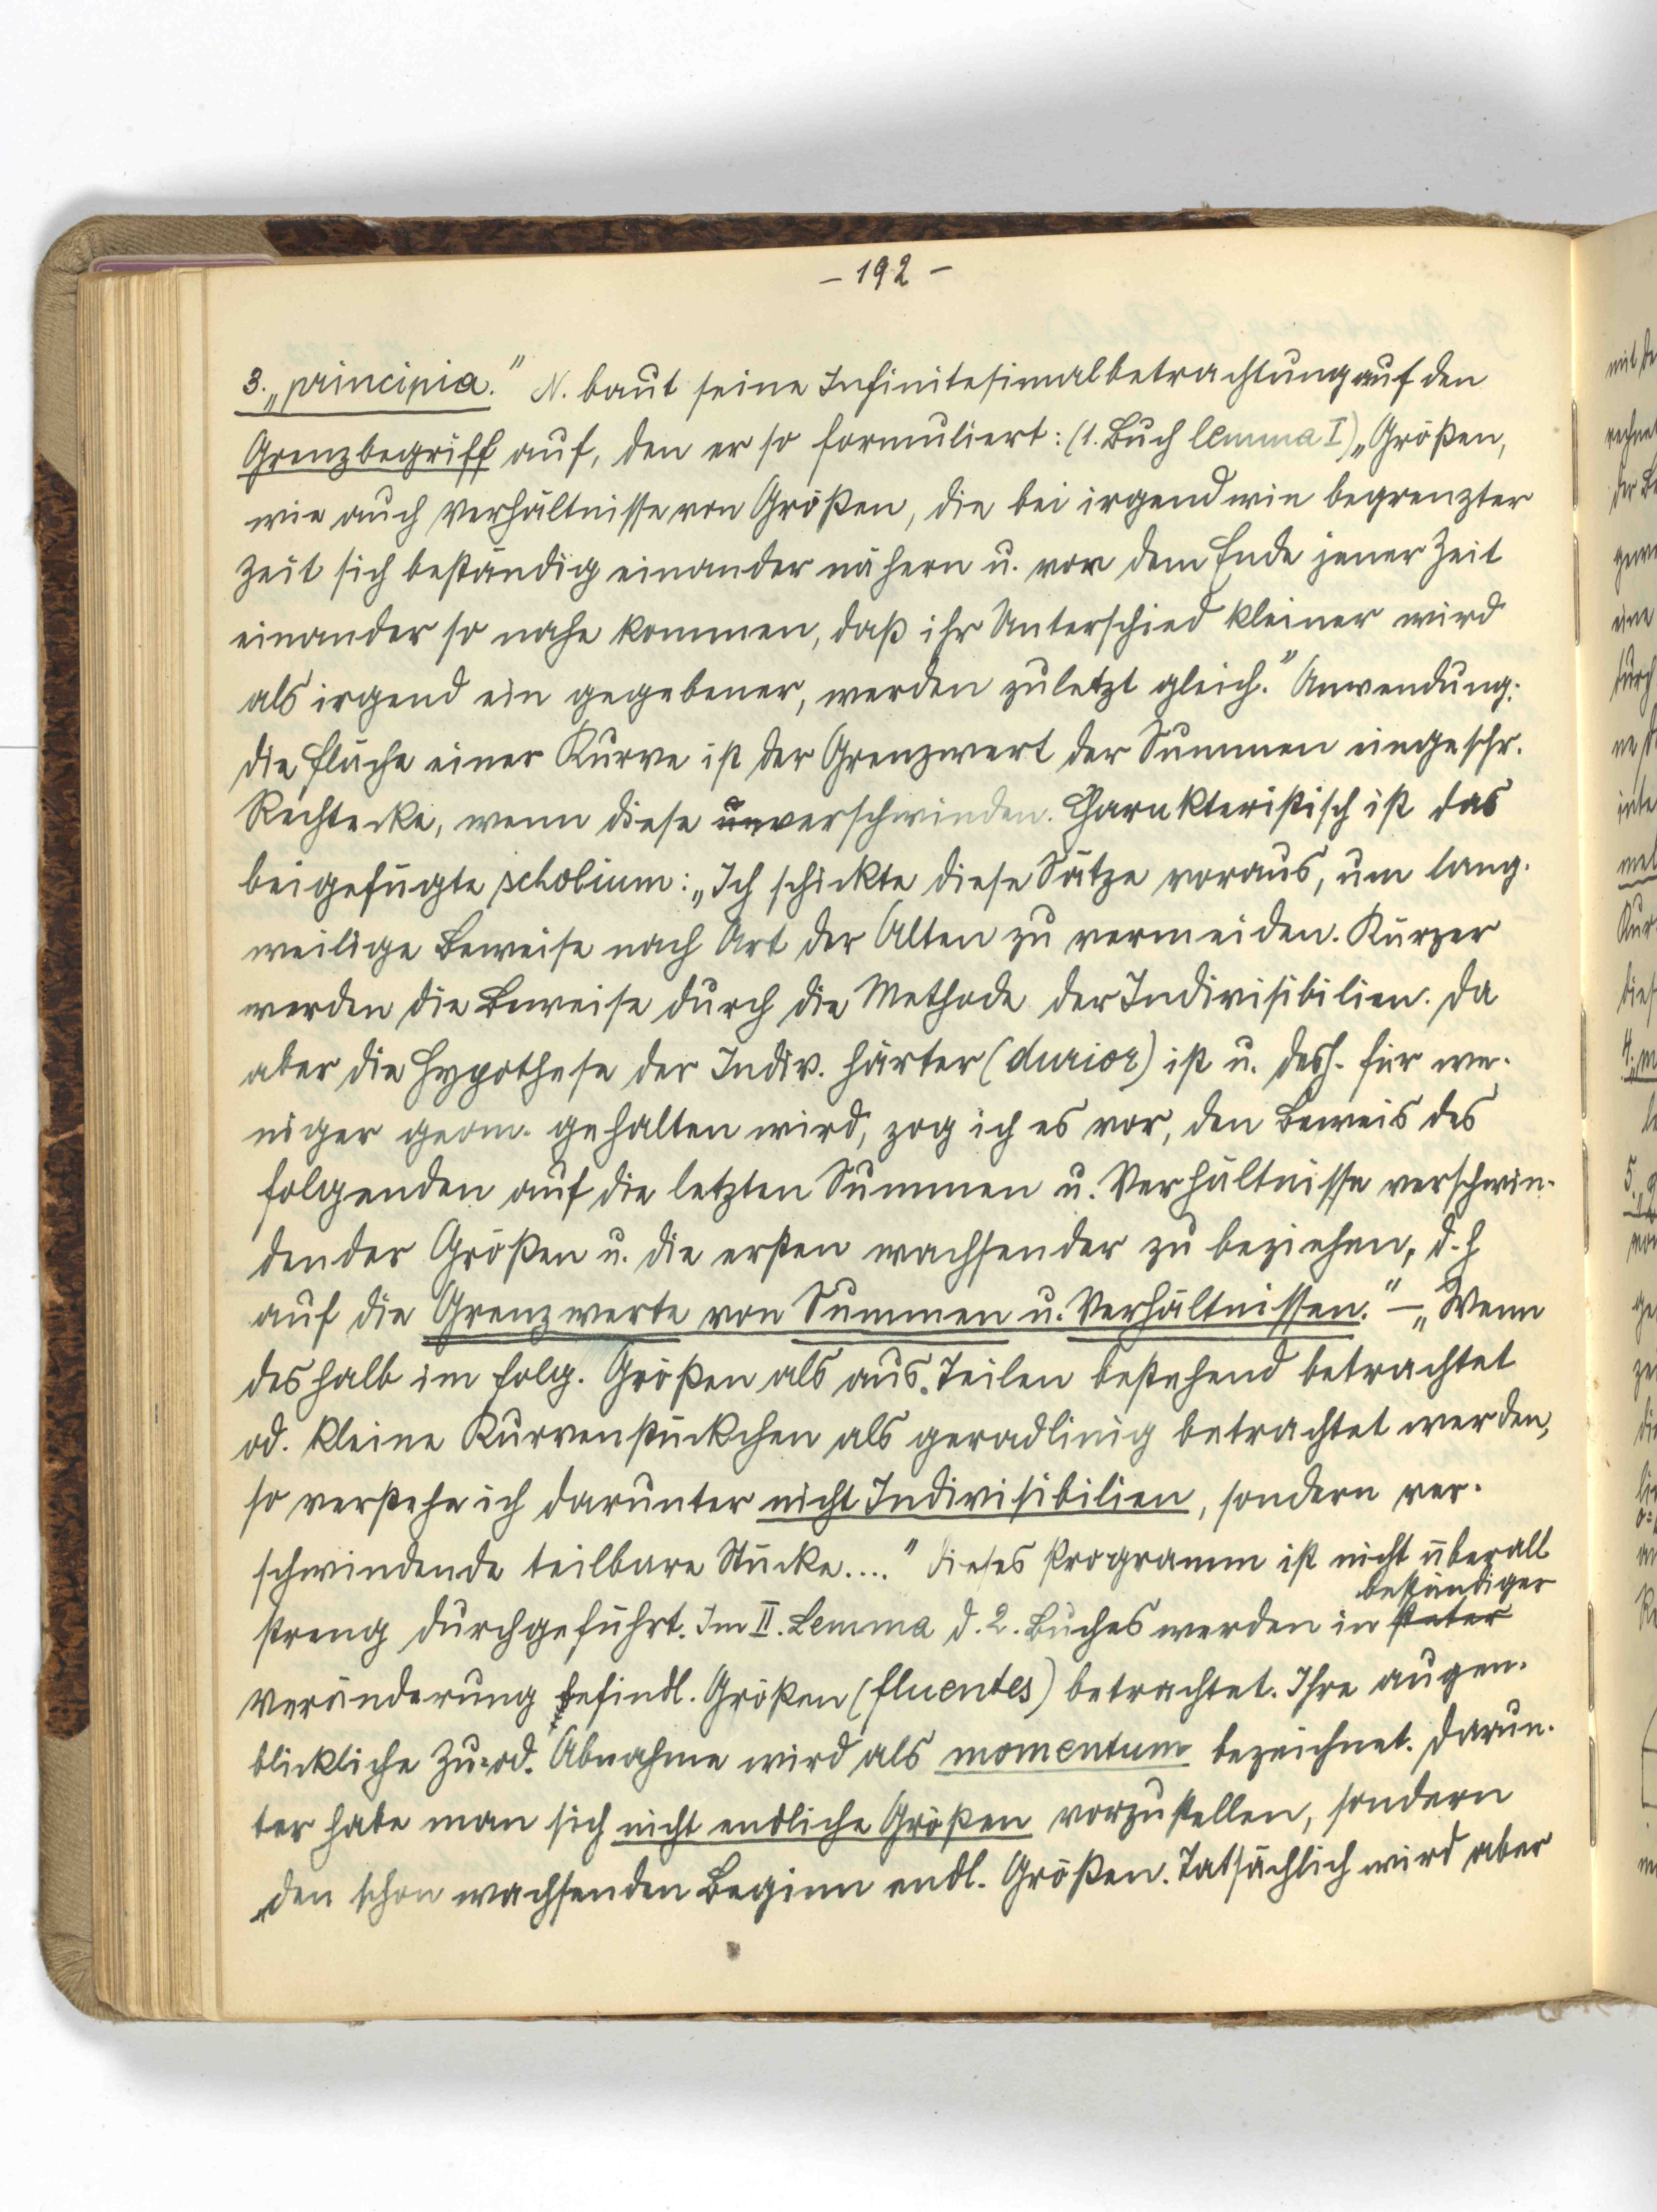 - 192 -
3. „principia." N. baut seine Infinitesimalbetrachtung auf den
Grenzbegriff auf, den er so formuliert: (1. Buch lemma I) „Größen,
wie auch Verhältnisse von Größen, die bei irgendwie begrenzter
Zeit sich beständig einander nähern u. vor dem Ende jener Zeit
einander so nahe kommen, daß ihr Unterschied kleiner wird
als irgend ein gegebener, werden zuletzt gleich." Anwendung:
die Fläche einer Kurve ist der Grenzwert der Summen eingeschr.
Rechtecke, wenn diese verschwinden. Charakteristisch ist das
beigefügte scholium: „Ich schickte diese Sätze voraus, um lang-
weilige Beweise nach Art der Alten zu vermeiden. Kürzer
werden die Beweise durch die Methode der Indivisibilien. Da
aber die Hypothese der Indiv. härter (durior) ist u. desh. für we-
niger geom. gehalten wird, zog ich es vor, den Beweis des
folgenden auf die letzten Summen u. Verhältnisse verschwin-
dender Größen u. die ersten wachsender zu beziehen, d. h
auf die Grenzwerte von Summen u. Verhältnissen." – „Wenn
deshalb im folg. Größen als aus Teilen bestehend betrachtet
od. kleine Kurvenstückchen als geradlinig betrachtet werden,
so verstehe ich darunter nicht Indivisibilien, sondern ver-
schwindende teilbare Stücke...." Dieses Programm ist nicht überall
streng durchgeführt. Im II. Lemma d. 2. Buches werden in steter beständiger
Veränderung befindl. Größen (fluentes) betrachtet. Ihre augen-
blickliche Zu- od. Abnahme wird als momentum bezeichnet. Darun-
ter habe man sich nicht endliche Größen vorzustellen, sondern
„den schon wachsenden Beginn endl. Größen. Tatsächlich wird aber